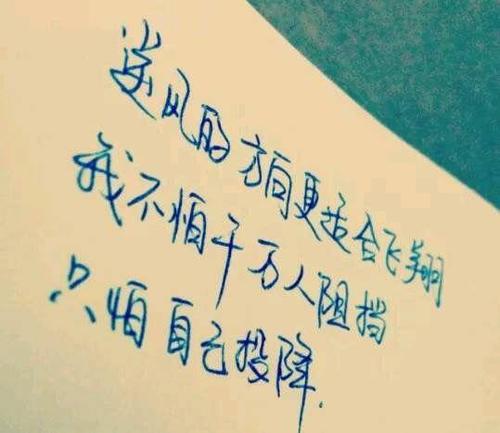 逆风的方向更适合飞翔
我不怕千万人阻挡
只怕自己投降.